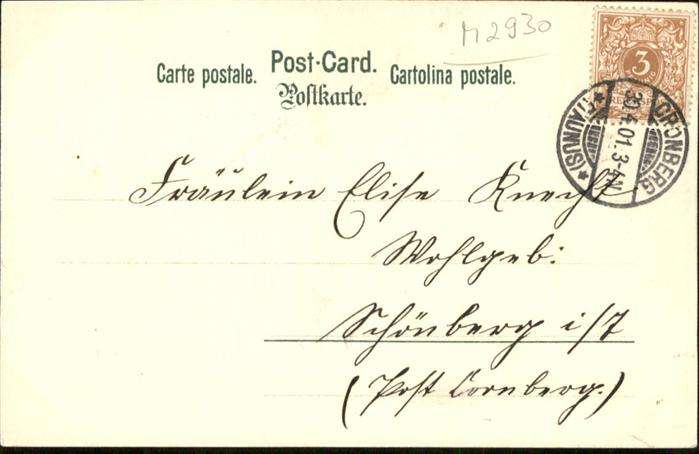 M2930
Carte postale. Post-Card. Cartolina postale.
Postkarte.
3
CRONBERG
(TAUNUS)
30.4.01.3-4N
Fräulein Elise Knecht
Wohlgeb:
Schönberg i/T
(Post Cronberg.)